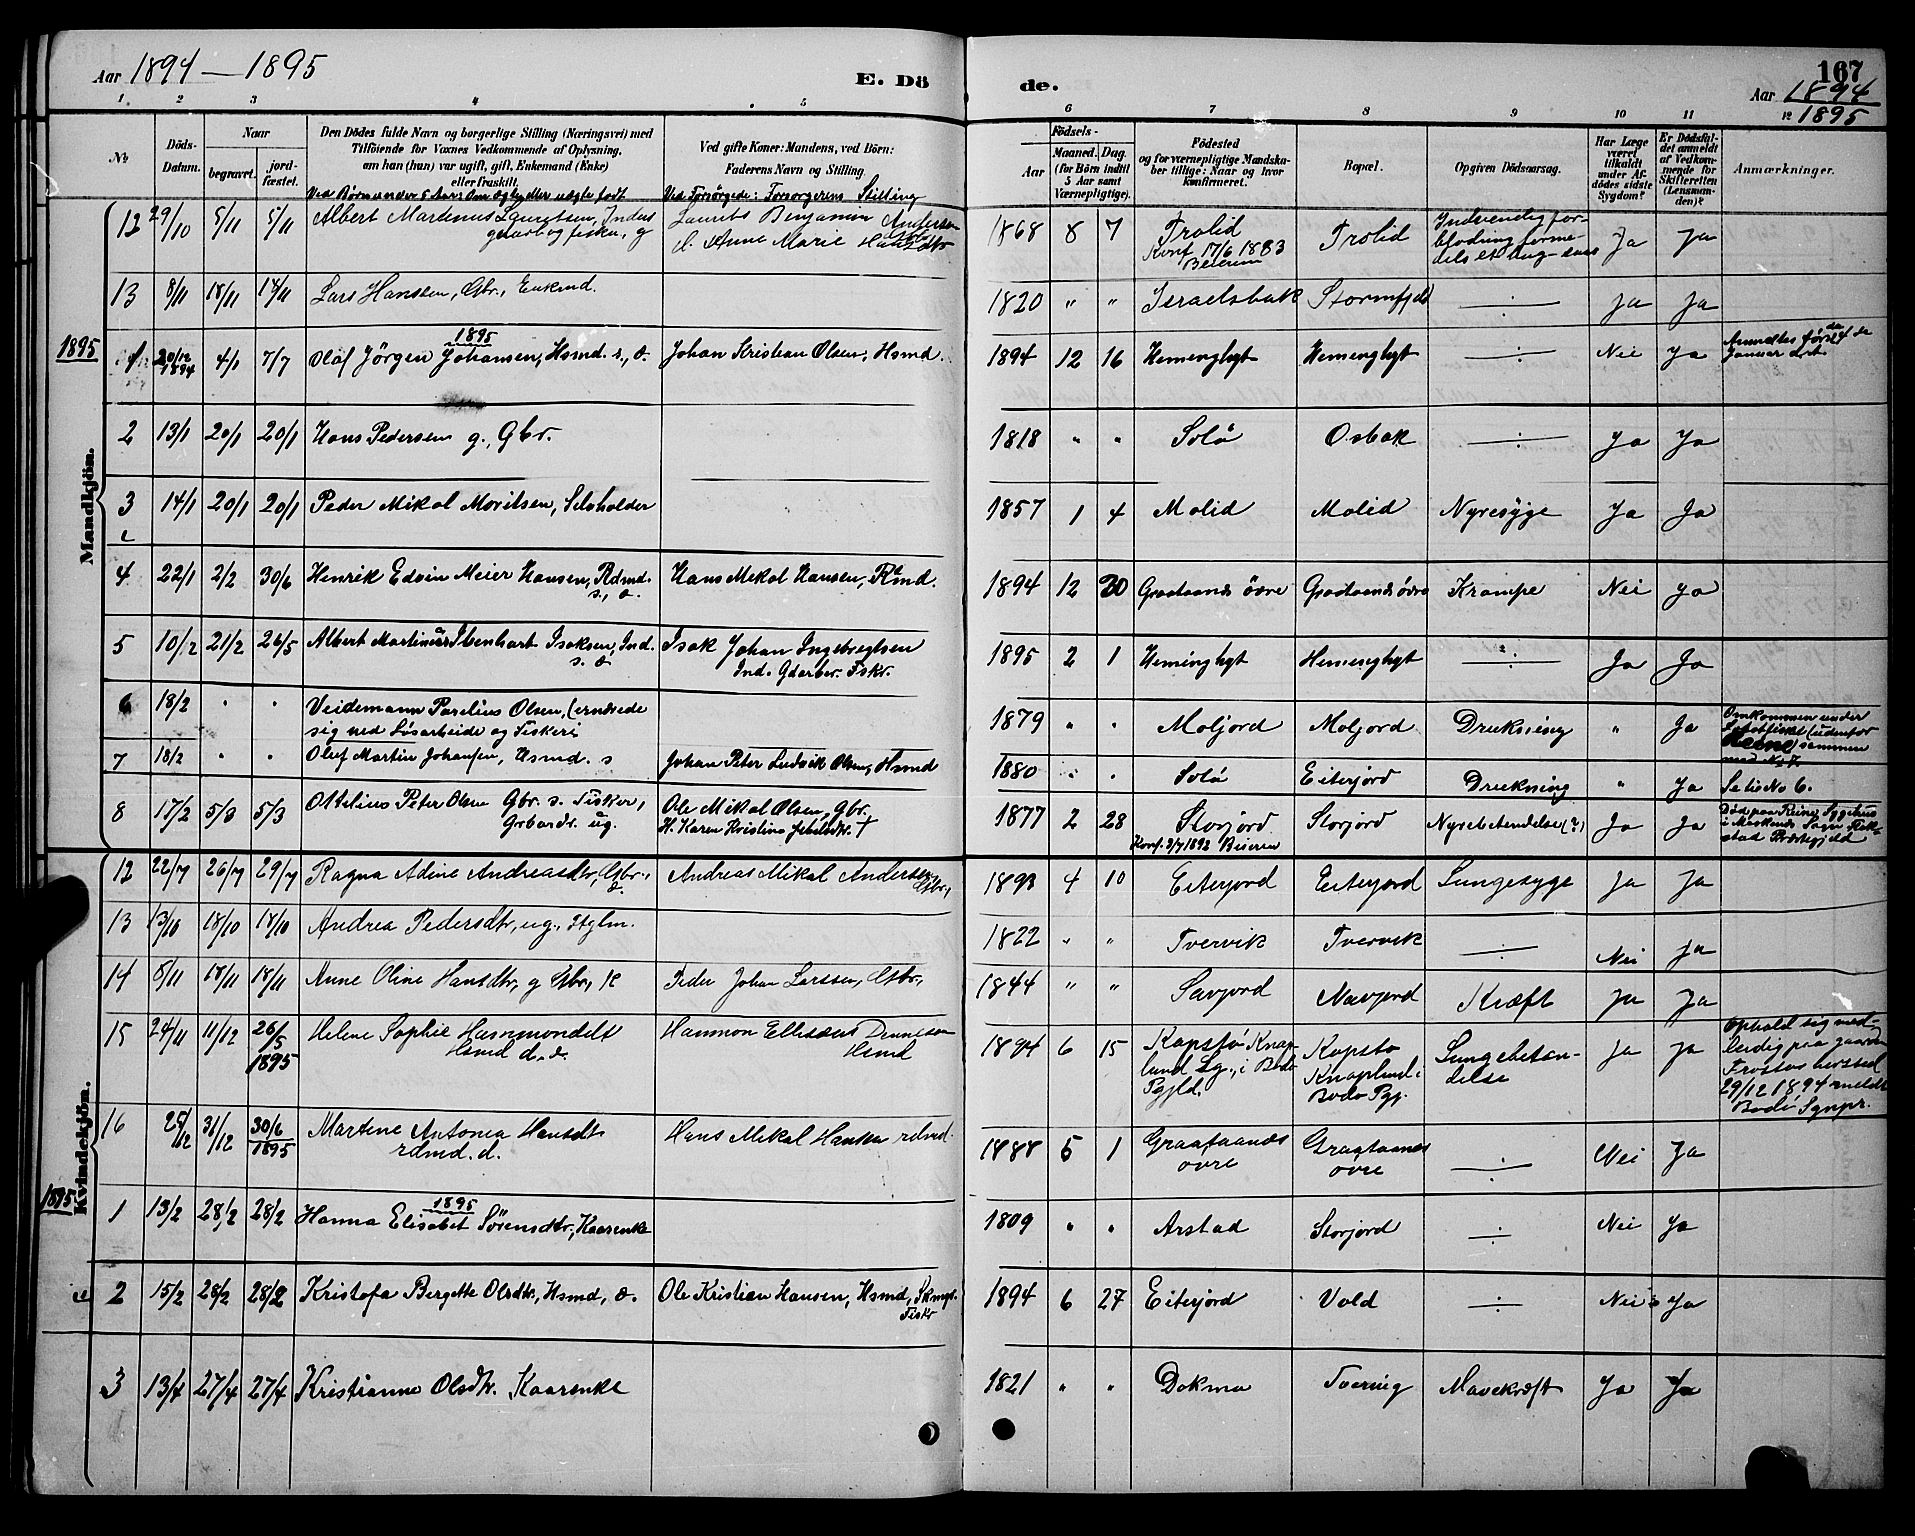 Aar 1894 – 1895 E. Dö
de. 167
Aar 1894
1895
1. 2 3 4 5
6 7 8 9 10 11 12
No
Döds-Datum.
Naar
begravet.
jord-fæstet.
Den Dödes fulde Navn og borgerlige Stilling (Næringsvei) med
Tilföiende for Voxnes Vedkommende af Oplysning,
om han (hun) var ugift, gift, Enkemand (Enke)
eller fraskilt.
Ved Børn under 5 Aar: Om ægte eller uægte født
Ved gifte Koner: Mandens, ved Börn:
Faderens Navn og Stilling.
Ved Forsørgede: Forsørgerens Stilling
Födsels-
Aar
Maaned. Dag.
(for Börn indtil
5 Aar samt
Værnepligtige).
Födested
og for værnepligtige Mandska-
ber tillige: Naar og hvor
konfirmeret.
Bopæl.
Opgiven Dödsaarsag.
Har Læge
været
tilkaldt
under Af-
dödes sidste
Sygdom?
Er Dödsfal-
det anmeldt
af Vedkom-
mende for
Skifteretten
(Lensman-
den)?
Anmærkninger.
Mandkjön.
12 29/10 5/11 5/11 Albert Martinus Lauritsen, Inders
Laurits Benjamin Andersen
Anne Marie
1868 8 7 Trolid
Konf 17/6 1883
Beieren
Trolid Indvendig for-
blødning forme-
delst et
Ja Ja
13 8/11 18/11 18/11 Lars Hanssen, Gbr., Enkmd.
1820 " " Israelsbak Stormfjeld ÷ Ja Ja
1895
1895
1 20/12 1894 4/1 7/7 Olaf Jörgen Johansen, Hsmd. s., æ. Johan Kristian Olsen, Hsmd.
1894 12 16 Hemenghygt Hemenghygt ÷ Nei Ja
Januar
2 13/1 20/1 20/1 Hans Pedersen g., Gbr.
1818 " " Solö Osbak ÷ Ja Ja
3 14/1 20/1 20/1 Peder Mikal Moritsen, Selvholder
1857 1 4 Molid Molid Nyresyge Ja Ja
4 22/1 2/2 30/6 Henrik Edvin Meier Hansen, Rdmd.
s., æ. Hans Mikal Hansen, Rdmd.
1894 12 20 Graataands övre Graataands övre Krampe Nei Ja
5 10/2 21/2 26/5 Albert Martinus Ibenhart Isaksen, Ind.
s. æ Isak Johan Ingebregtsen
Ind. Gdarber. Fskr.
1895 2 1 Heminghygt Hemenghygt ÷ Ja Ja
6 18/2 " " Veidemann Parelius Olsen, (ernærede
sig ved Løsarbeide og Fiskeri
1879 " " Moljord Moljord Drukning " Ja
Omkommen under
Lofotfisket (udenfor
Reine) sammen
med No 7.
7 18/2 " " Oluf Martin Johansen, Hsmd. s Johan Peter Ludvik Olsen, Hsmd
1880 " " Solö Eiterjord Drukning " Ja Se No 6.
8 17/2 5/3 5/3 Ottelius Peter Olsen Gbr. s. Fisker,
Grbardr. ug. Ole Mikal Olsen, Gbr.
H. Karen Kristina
1877 2 28 Storjord
Konf. 3/7 1892 Beieren
Storjord Nyrebetendelse (?) Ja Ja
Döde paa Reine Sygehus
Præstegjeld
Kvindekjön.
12 22/7 26/7 29/7 Ragna Adine Andreasdtr., Gbr.,
Andreas Mikal Andersen
Gbr,
1893 4 10 Eiterjord Eiterjord Lungesyge Ja Ja
13 13/10 18/10 18/10 Andrea Pedersdtr, ug.
1822 " " Tvervik Tvervik ÷ Nei Ja
14 8/11 18/11 18/11 Anne Oline Hansdtr, g Gbr, K Peder Johan Larssen, Gbr,
1844 " " Savjord Navjord Kræft Ja Ja
15 24/11 11/12 26/5 1895 Helene Sophie Hammondtt
Hsmd d. æ. Hammon Ellisæus Dennisen
Hsmd
1894 6 15 Kopstö Knap-
lund Sg., i Bodø
Pgjld. Kopstø
Knaplund i
Bodø Pgj.
Lungebetæn-
delse Ja Ja
Ophold sig mid-
lerdig paa gaarden
29/12 1894 meldt
Bodö Sgnpr.
16 25/12 31/12 30/6 1895 Martine Antonia Hansdtr
rdmd. d. Hans Mikal Hansen rdmd.
1888 5 1 Graataands
övre Graataands
övre ÷ Nei Ja
1895
1895
1 13/2 28/2 28/2 Hanna Elisabet Sörensdtr., Kaarenke
1809 " " Arstad Storjord ÷ Nei Ja
2 15/2 28/2 28/2 Kristofa Bergette Olsdtr., Hsmd, æ. Ole Kristian Hansen, Hsmd,
Fiskr
1894 6 27 Eiterjord Vold ÷ Nei Ja
3 13/4 27/4 27/4 Kristianne Olsdtr. Kaarenke
1821 " " Dokmo Tvering Mavekræft Ja Ja